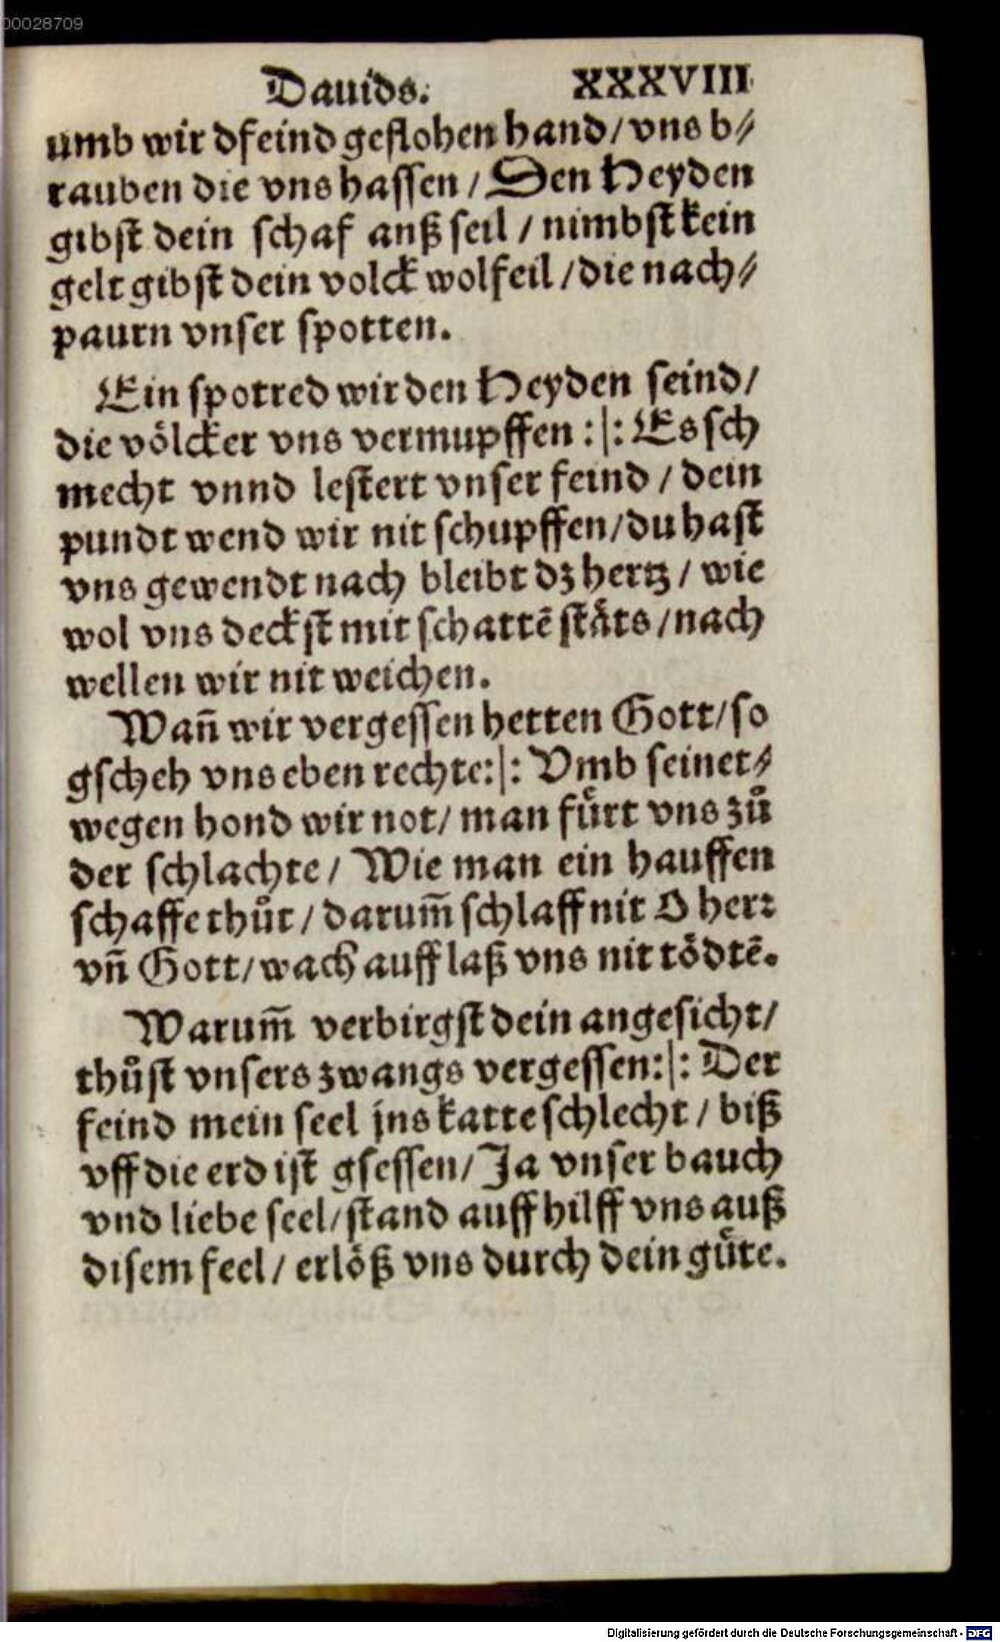 00028709
Dauids. XXXVIII
umb wir dfeind geflohen hand/vns b⸗
rauben die vns hassen/Den Heyden
gibst dein schaf anß seil/nimbst kein
gelt gibst dein volck wolfeil/die nach⸗
paurn vnser spotten.
Ein spotred wir den Heyden seind/
die völcker vns vermupffen :|: Es sch
mecht vnnd lestert vnser feind/dein
pundt wend wir nit schupffen/du hast
vns gewendt nach bleibt dz hertz/wie
wol vns deckst mit schattẽ stäts/nach
wellen wir nit weichen.
Wañ wir vergessen hetten Gott/so
gscheh vns eben rechte:|: Vmb seinet⸗
wegen hond wir not/man fürt vns zů
der schlachte/Wie man ein hauffen
schaffe thůt/darum̃ schlaff nit O herr
vñ Gott/wach auff laß vns nit tödtẽ.
Warum̃ verbirgst dein angesicht/
thůst vnsers zwangs vergessen:|: Der
feind mein seel jns katte schlecht/biß
vff die erd ist gsessen/Ja vnser bauch
vnd liebe seel/stand auff hilff vns auß
disem feel/erlöß vns durch dein güte.
Digitalisierung gefördert durch die Deutsche Forschungsgemeinschaft - DFG